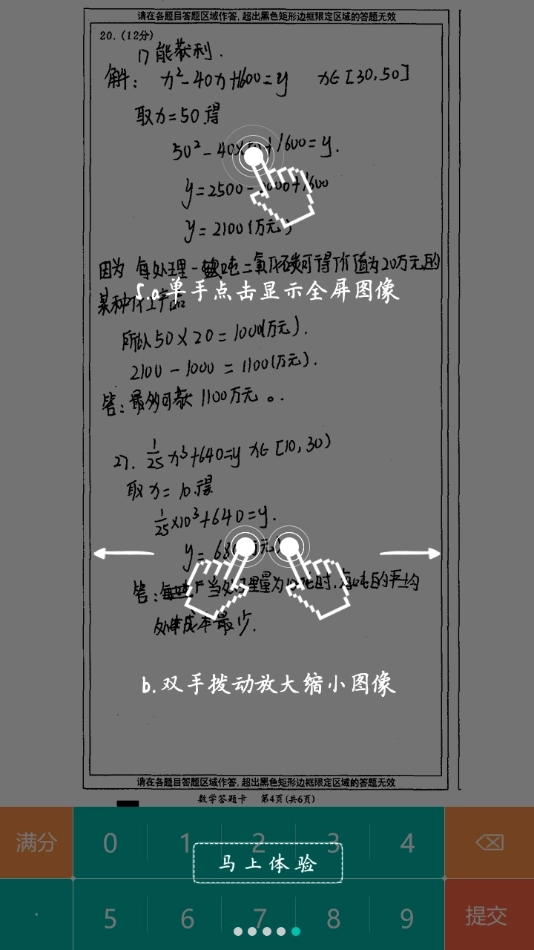 请在各题目答题区域作答,超出黑色矩形边框限定区域的答题无效
20.(12分)
1) 能获利.
解: x²-40x+1600=y x∈[30,50]
取x=50.得
50²-40×50+1600=y.
y=2500-2000+1600
y=2100(万元)
因为 每处理一吨二氧化碳可得价值为20万元的
某种化工产品
5.a.单手点击显示全屏图像
所以50×20=1000(万元).
2100-1000=1100(万元).
答:最多可获1100万元。.
27. 1/25 x³+640=y x∈[10,30)
取x=10.得
1/25×10³+640=y.
y=680(万元)
答: 当处理量为10吨时,每吨的平均
处理成本最少.
b.双手拨动放大缩小图像
请在各题目答题区域作答,超出黑色矩形边框限定区域的答题无效
数学答题卡 第4页(共6页)
满分 0 1 2 3 4
马上体验
· 5 6 7 8 9 提交